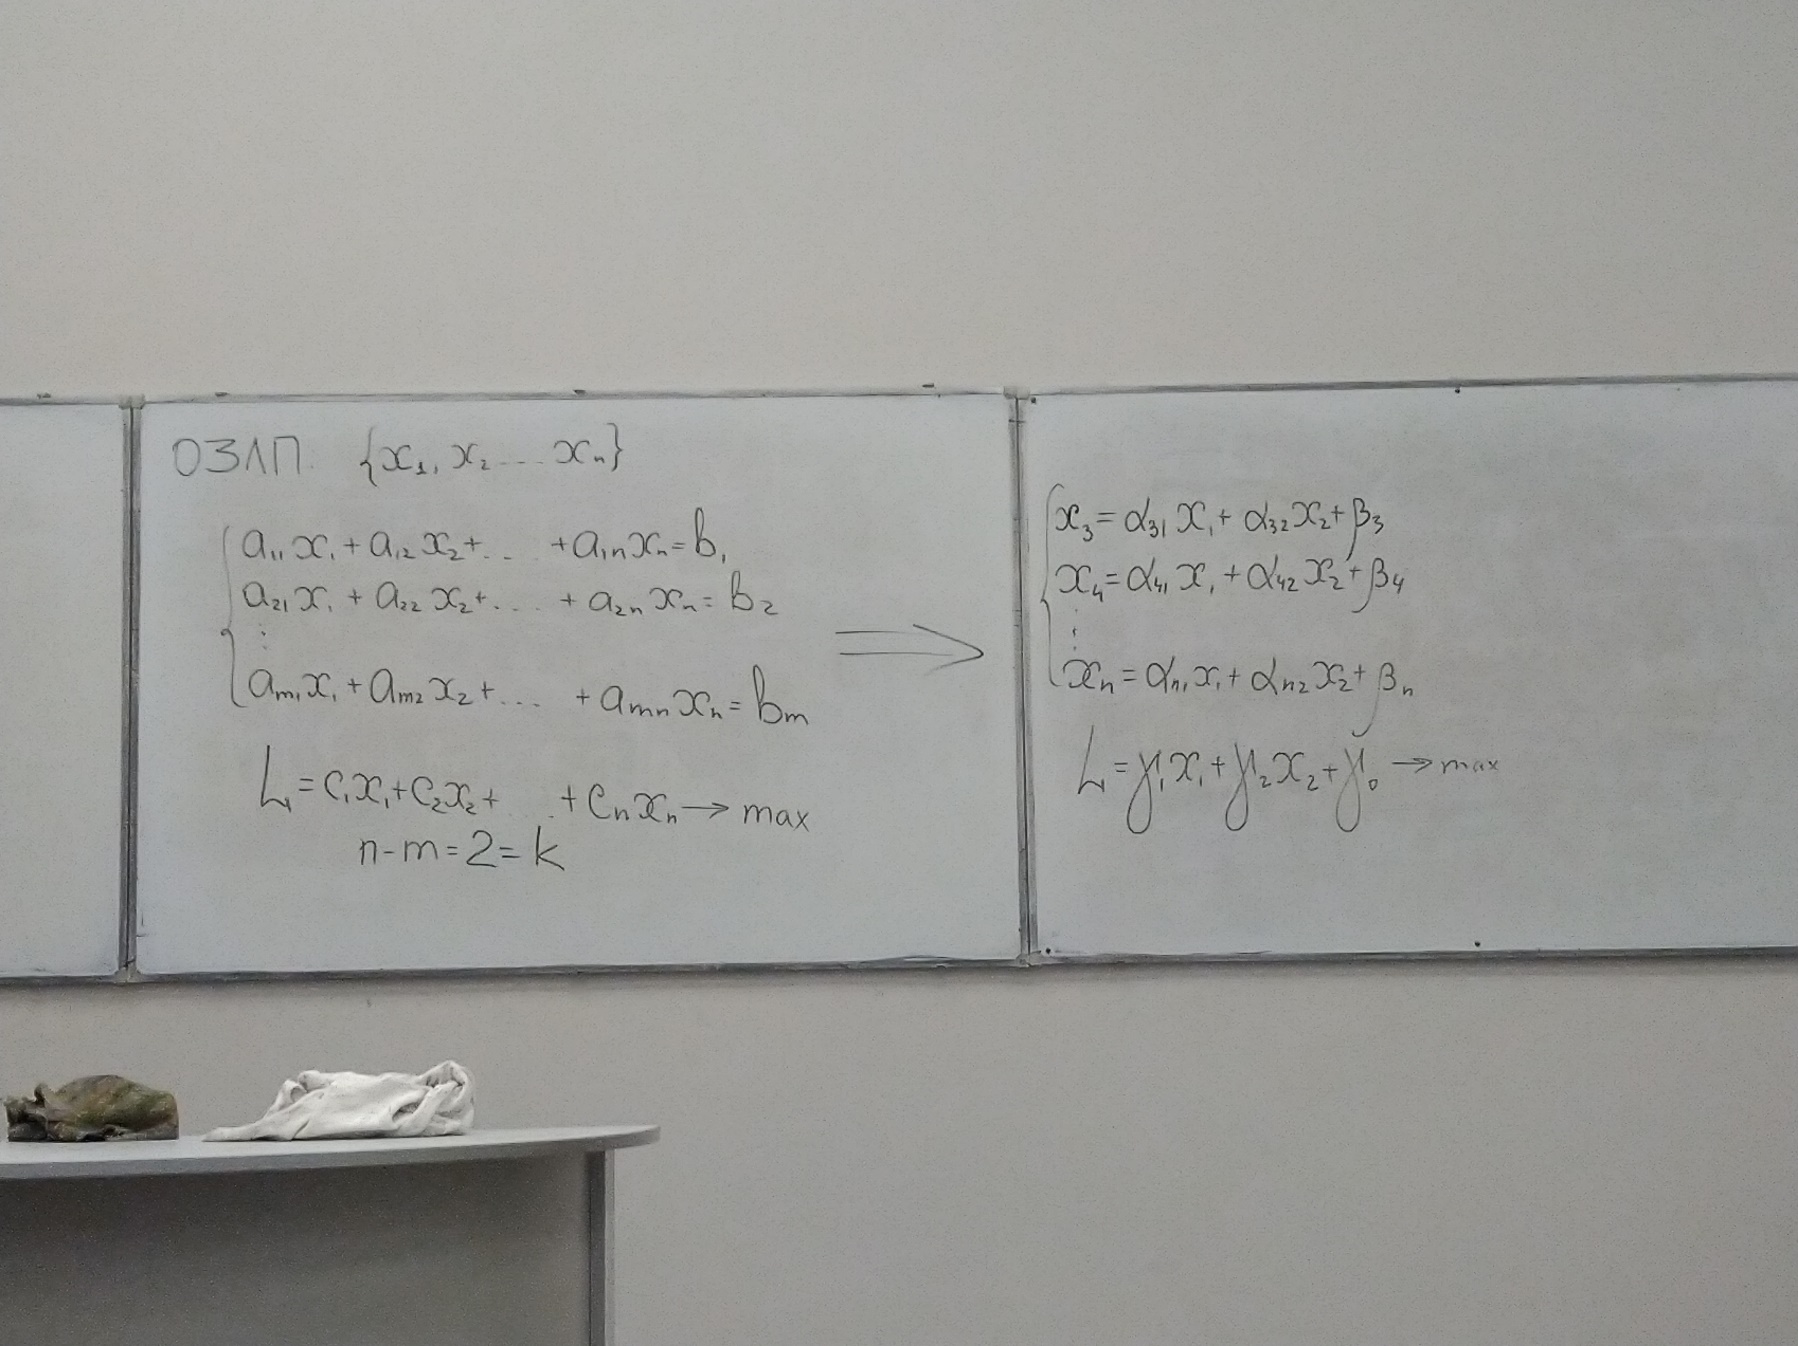 ОЗЛП. {x₁, x₂ ... xₙ}
a₁₁x₁ + a₁₂x₂ + ... + a₁ₙxₙ = b₁
a₂₁x₁ + a₂₂x₂ + ... + a₂ₙxₙ = b₂
⋮
aₘ₁x₁ + aₘ₂x₂ + ... + aₘₙxₙ = bₘ
L = c₁x₁ + c₂x₂ + ... + cₙxₙ → max
n - m = 2 = k
⇒
x₃ = α₃₁x₁ + α₃₂x₂ + β₃
x₄ = α₄₁x₁ + α₄₂x₂ + β₄
⋮
xₙ = αₙ₁x₁ + αₙ₂x₂ + βₙ
L = γ₁x₁ + γ₂x₂ + γ₀ → max